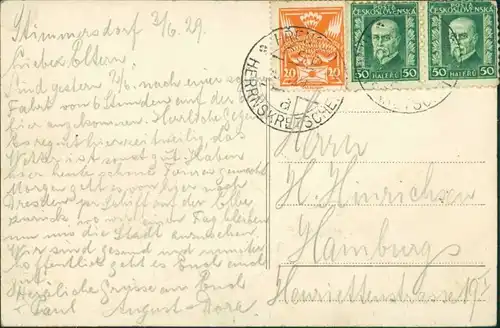 Stimmersdorf 3/6. 29.
Lieben Eltern.
Sind gestern 2/6. nach einer
Fahrt von 6 Stunden auf der
hier angekommen. Herrliche Gegend
es regnet hier teilweise das
Wetter ist sonst gut. Haben
hier heute schöne Touren gemacht
Morgen geht es von hier nach
Dresden per Schiff auf der Elbe
zurück wo wir einen Tag bleiben
um uns die Stadt anzusehen.
Wir sind gesund und munter
hoffentlich geht es Euch auch
Herzliche Grüsse an Euch
Paul August-Dora
ČESKOSLOVENSKÁ
20 20
ČESKOSLOVENSKO
50 HALÉŘŮ 50
ČESKOSLOVENSKO
50 HALÉŘŮ 50
HŘENSKO
HERRNSKRETSCHEN
a
Herrn
H. Hinrichsen
Hamburg
Henriettenstrasse 19 I